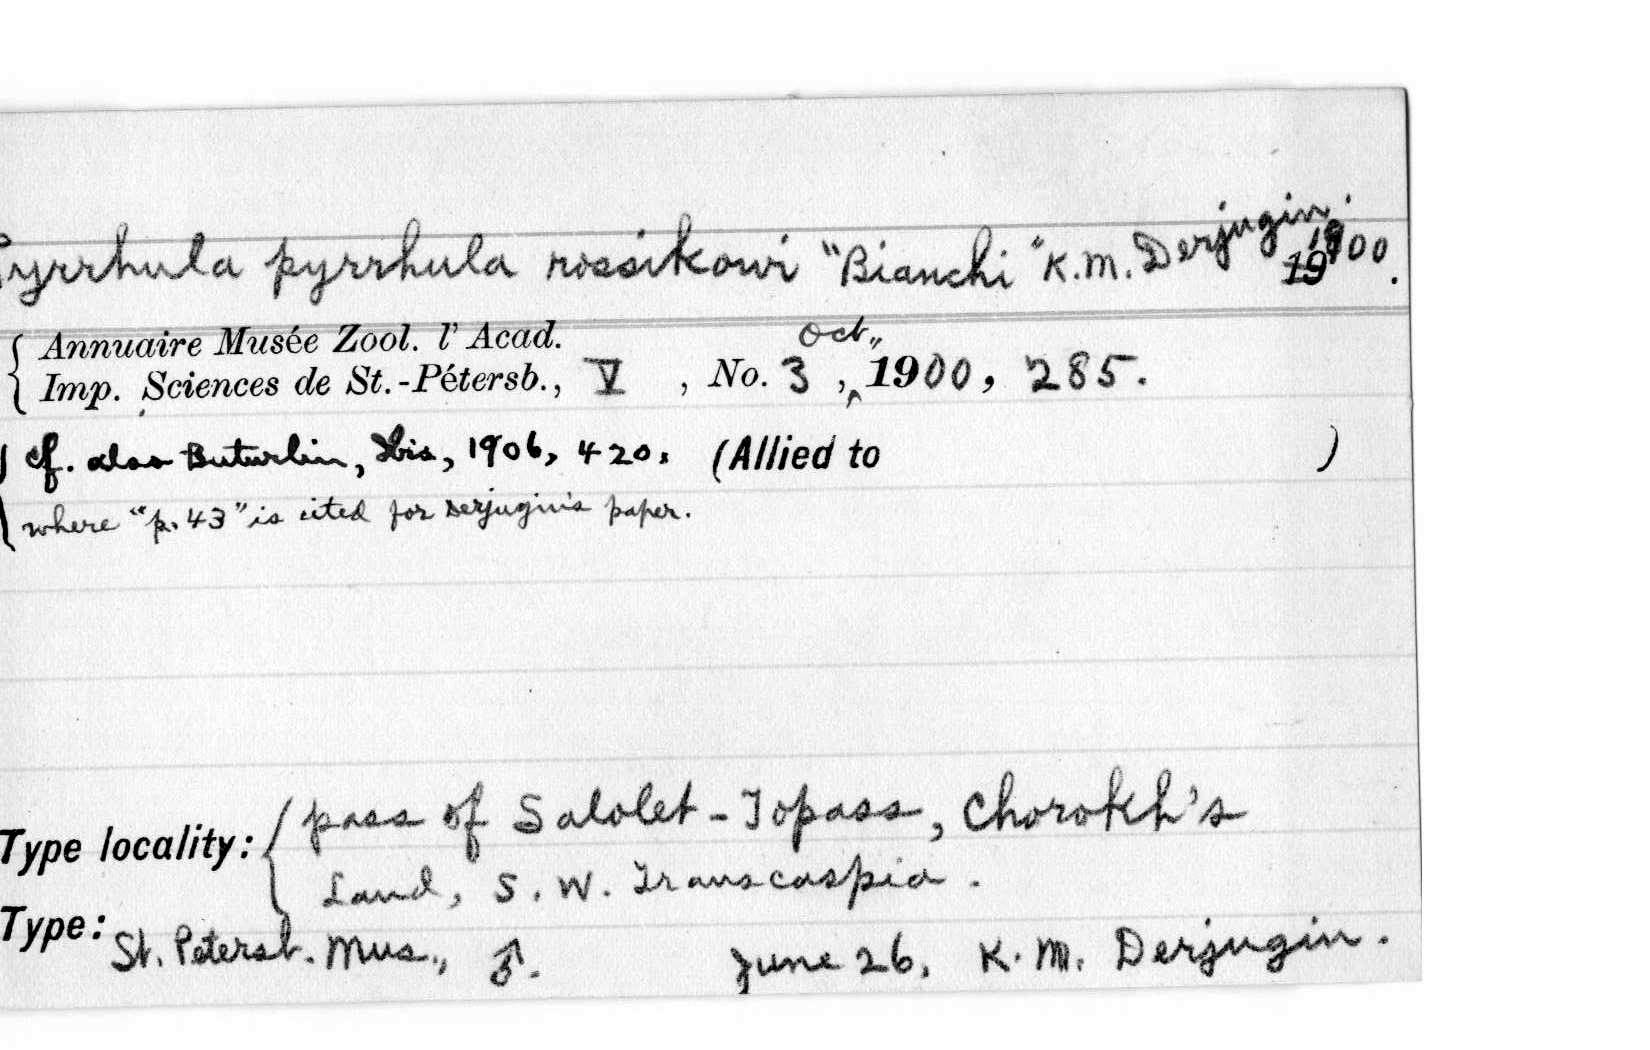 Pyrrhula pyrrhula rossikowi "Bianchi" K.M. Derjugin. 1900.
Annuaire Musée Zool. l' Acad.
Oct.,
Imp. Sciences de St.-Pétersb., V, No. 3, 1900, 285.
cf. also Buturlin, Ibis, 1906, 420. (Allied to )
where "p. 43" is cited for Derjugin's paper.
Type locality: pass of Salolet-Topass, Chorokh's
Land, S. W. Transcaspia.
Type: St. Petersb. Mus., ♂. June 26, K. M. Derjugin.